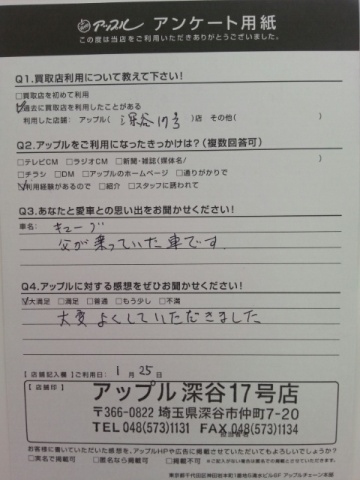 アップル アンケート用紙
この度は当店をご利用いただきありがとうございました。
Q1.買取店利用について教えて下さい!
□買取店を初めて利用
☑過去に買取店を利用したことがある
利用した店舗: アップル( 深谷17号 )店 その他( )
Q2.アップルをご利用になったきっかけは?(複数回答可)
□テレビCM □ラジオCM □新聞・雑誌(媒体名/ )
□チラシ □DM □アップルのホームページ □通りがかりで
☑利用経験があるので □紹介 □スタッフに誘われて
Q3.あなたと愛車との思い出をお聞かせください!
車名: キューブ
父が乗っていた車です
Q4.アップルに対する感想をぜひお聞かせください!
☑大満足 □満足 □普通 □もう少し □不満
大変よくしていただきました
【店舗記入欄】ご利用日: 1月25日
【店舗印】
アップル深谷17号店
〒366-0822 埼玉県深谷市仲町7-20
TEL 048(573)1131 FAX 048(573)1134
お客様に書いていただいた感想を、アップルHPや広告に掲載させていただいてもよろしいでしょうか?
□実名で掲載可 □匿名なら掲載可 □掲載不可